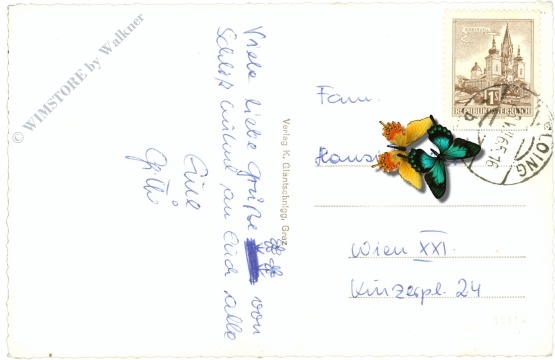 © WIMSTORE by Walkner
Viele liebe Grüße von
Schloß an Euch alle
Eure
Verlag K. Glantschnigg, Graz
REPUBLIK ÖSTERREICH
Fam.
Hansi
Wien XXI.
Kinzerpl. 24